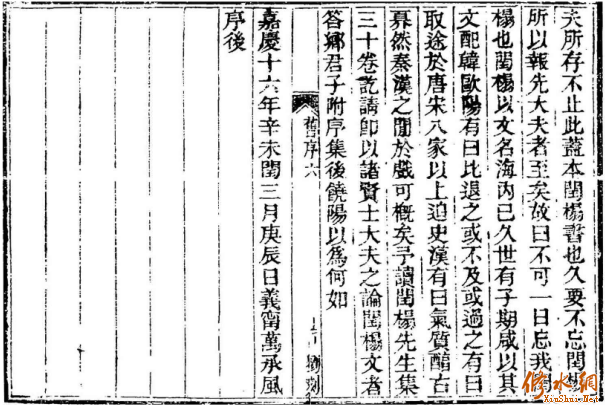 夫所存不止此蓋本閏楊書也久要不忘閏楊
所以報先大夫者至矣故曰不可一日忘我閏
楊也閏楊以文名海內已久世有子期咸以其
文配韓歐陽有曰比退之或不及或過之有曰
取途於唐宋八家以上追史漢有曰氣質醇古
昇然秦漢之間於戲可概矣予讀閏楊先生集
三十卷訖請即以諸賢士大夫之論閏楊文者
答鄉君子附序集後饒陽以為何如
舊序六
劉刻
嘉慶十六年辛未閏三月庚辰日義甯萬承風
序後
修水網
XinShui.Net